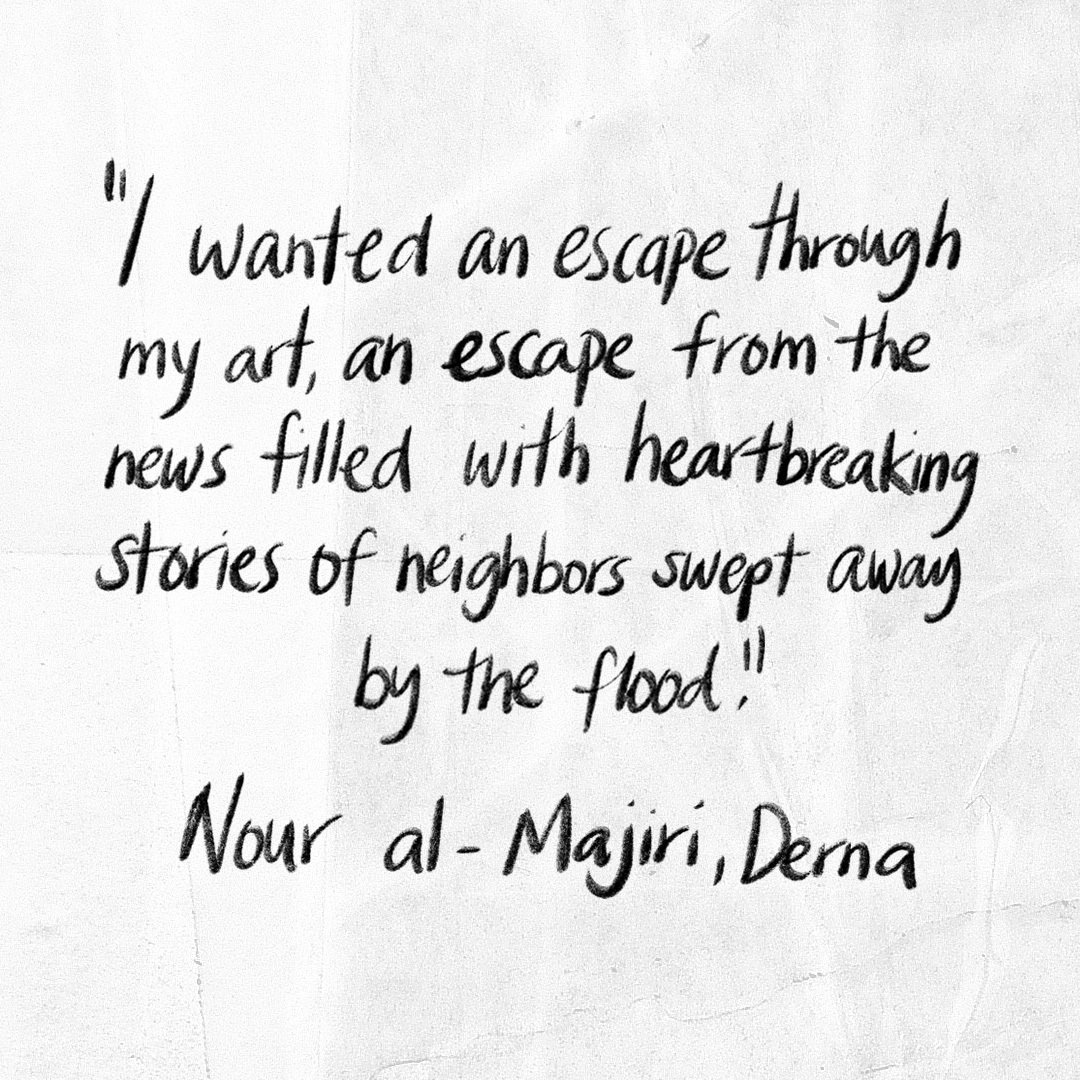 "I wanted an escape through
my art, an escape from the
news filled with heartbreaking
stories of neighbors swept away
by the flood."
Nour al-Majiri, Derna